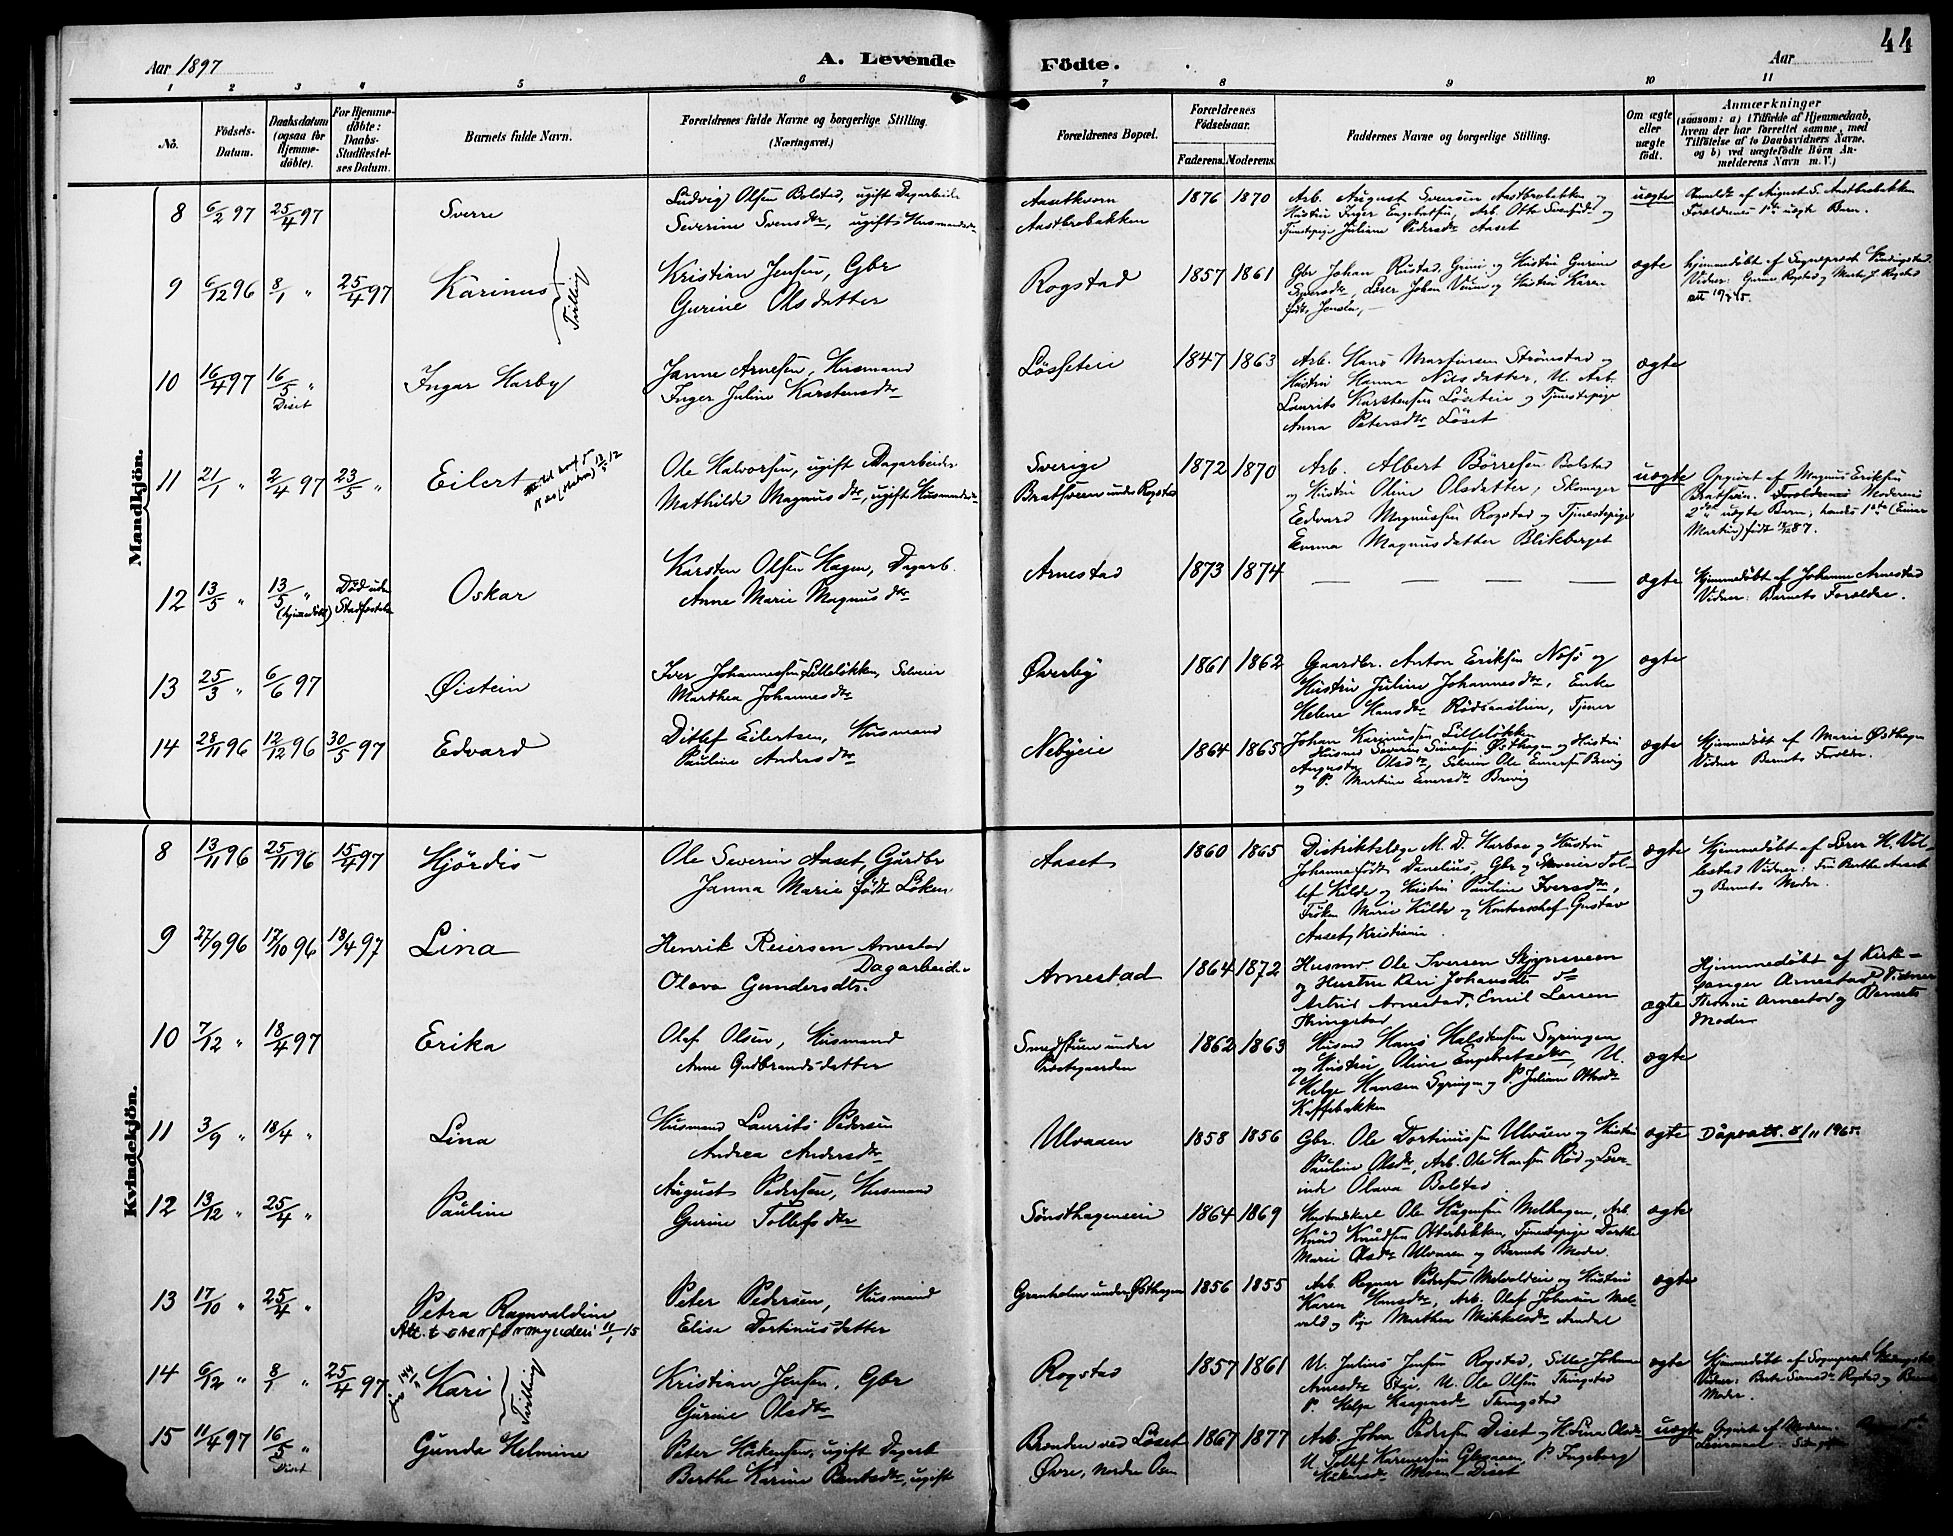 44
Aar 1897
A. Levende
Födte.
Aar
1 2 3 4 5 6 7 8 9 10 11
No.
Födsels-
Datum.
Daabsdatum
(ogsaa för
Hjemme-
döbte).
For Hjemme-
döbte:
Daabs-
Stadfæstel-
ses Datum.
Barnets fulde Navn.
Forældrenes fulde Navne og borgerlige Stilling
(Næringsvei.)
Forældrenes Bopæl.
Forældrenes
Födselsaar.
Faderens. Moderens.
Faddernes Navne og borgerlige Stilling.
Om ægte
eller
uægte
födt.
Anmærkninger
(saasom: a) i Tilfælde af Hjemmedaab,
hvem der har forrettet samme, med
Tilföielse af to Daabsvidners Navne,
og b) ved uægtefödte Börn An-
melderens Navn m. V.)
Mandkjön.
8 6/2 97 25/4 97 Sverre
Ludvig Olsen Bolstad, ugift Dagarbeider
Severine Svensdtr, ugift Husmandsdtr
Aasetkvern
Aastebrobakken
1876 1870
Arb. August Svensen Aastebrobakken og
Hustru Inger Engebretsen, Arb. Otto Svensen og
Tjenestepige Juliane Pedersdtr Aaset
uægte
Anmeldt af August S. Aastebrobakken
Forældrenes 1ste uægte Barn.
9 6/12 96 8/1 " 25/4 97 Karinus Tvilling
Kristian Jensen, Gbr
Gurine Olsdatter
Rogstad
1857 1861
Gbr Johan Rustad, Grini og Hustru Gurine
Iversdtr, Lærer Johan Veum og Hustru Karen
født Jensen,
ægte
Hjemmedöbt af Sogneprest
Vidner: Gurine Rogstad og Marte J. Rogstad
10 16/4 97 16/5 "
Diset
Ingar Harby
Janne Arnesen, Husmand
Inger Juline Karstensdtr
Lösseteie
1847 1863
Arb. Hans Martinsen Strömstad og
Hustru Hanna Nilsdatter, U. Arb.
Laurits Karstensen Löseteie og Tjenestepige
Anna Petersdtr Löset
ægte
11 21/1 " 2/4 97 23/5 " Eilert
Ole Halvorsen, ugift Dagarbeider
Mathilde Magnusdtr, ugift Husmandsdtr
Sverige
Bratsveen under Rogstad
1872 1870
Arb. Albert Börresen Bolstad
og Hustru Oline Olsdatter, Skomager
Edvard Magnussen Rogstad og Tjenestepige
Emma Magnusdatter Blikberget
uægte
Opgivet af Magnus Eriksen
Bratsveen. Forældrenes Moderens
2det uægte Barn, hendes 1ste (Einar
Martin) født 87.
12 13/5 " 13/5 "
(hjemmedöbt)
Död uden
Stadfæstelse
Oskar
Karsten Olsen Hagen, Dagarb.
Anne Marie Magnusdtr
Arnestad
1873 1874
— — — —
ægte
Hjemmedöbt af Johanne Arnestad
Vidner: Barnets Forældre.
13 25/3 " 6/6 97 Øistein
Iver Johannessen Lillelökken, Selveier
Marthea Johannesdtr
Øverby
1861 1862
Gaardbr. Anton Eriksen Næsö og
Hustru Juline Johannesdtr, Enke
Helene Hansdtr Rödsaaslien, Tjener
Johan Karinussen, Lillelökken
ægte
14 28/11 96 12/12 96 30/5 97 Edvard
Ditlef Eilertsen, Husmand
Pauline Andersdtr
Nebyeie
1864 1865
Husmd Severin Simensen Østhagen og Hustru
Augusta Olsdtr, Selveier Ole Einarsen Brevig
og P. Martine Einarsdtr Brevig
ægte
Hjemmedöbt af Marie Østhagen
Vidner Barnets Forældre.
Kvindekjön.
8 13/11 96 25/11 96 15/4 97 Hjördis
Ole Severin Aaset, Gårdbr
Janna Marie født Löken
Aaset
1860 1865
Distriktslæge M. D. Harboe og Hustru
Johanne født Danelius, Gbr og Skoveier Tol-
lef Kilde og Hustru Pauline Iversdtr,
Fröken Marie Kilde og Kontorschef Gustav
Aaset, Kristiania
ægte
Hjemmedöbt af Lærer H. Vol-
lestad Vidner: Fru Berthe Aaset
og Barnets Moder.
9 27/9 96 17/10 96 18/4 97 Lina
Henrik Reiersen Arnestad
Dagarbeider
Olava Gundersdtr.
Arnestad
1864 1872
Husmd Ole Iversen Skjynsveen
og Hustru Kari Johansdtr
Astrid Arnestad, Emil Larsen
Thingstad
ægte
Hjemmedöbt af Kirke-
sanger Arnestad, Vidner
Thomine Arnestad og Barnets
Moder
10 7/12 " 18/4 97 Erika
Olaf Olsen, Husmand
Anne Gudbrandsdatter
Smedstuen under
Præstegaarden
1862 1863
Husmd Hans Halstensen Syringen
og Hustru Oline Engebretsdtr, U.
Helge Hansen Syringen og P. Juliane Ottesdtr
Kaffebakken
ægte
11 3/9 " 18/4 " Lina
Husmand Laurits Pedersen
Andrea Andersdtr
Ulvaaen
1858 1856
Gbr. Ole Dortinussen Ulvaaen og Hustru
Pauline Olsdtr, Arb. Ole Hansen Röd og Lærer-
inde Olava Bolstad
ægte
Dåpsatt. 8/11 1965.
12 13/12 " 25/4 " Pauline
August Pedersen, Husmand
Gurine Tollefsdtr
Sönsthageneie
1864 1869
Husmd Ole Haagensen Melhagen, Arb.
Knud Knudsen Atterbakken, Tjenestepige Dorthe
Marie Olsdtr Ulvaaen og Barnets Moder.
ægte
13 17/10 " 25/4 "
Petra Ragnvaldine
Att. t overformynderi 11/1 15
Peter Pedersen, Husmand
Elise Dortinusdatter
Granholm under Østhagen
1856 1855
Arb. Ragnar Pedersen Melvoldeie og Hustru
Karen Hansdtr, Arb. Olaf Johnsen Mel-
vold og Pige Marthea Mikkelsdtr Arndal
ægte
14 6/12 " 8/1 " 25/4 97 Kari Tvilling
Kristian Jensen, Gbr
Gurine Olsdtr
Rogstad
1857 1861
U. Julius Jensen Rogstad, Sille Johanne
Arnesdtr Stai, U. Ole Olsen Thingstad
P. Helga Haagensdtr Thingstad
ægte
Hjemmedöbt af Sogneprest
Vidner: Berte Iversdtr Rogstad og Barnets
Moder.
15 11/4 97 16/5 "
Diset
Gunda Helmine
Peter Håkensen, ugift Dagarb
Berthe Karine Berntsdtr, ugift
Brænden ved Löset
Øvre, Nordre Osen
1867 1877
Arb. Johan Pedersen Diset og H. Lina Olsdtr
U. Tollef Karenersen Glesaaen, P. Ingeborg
Håkensdtr Moen — Diset
uægte
Opgivet af Moderen.